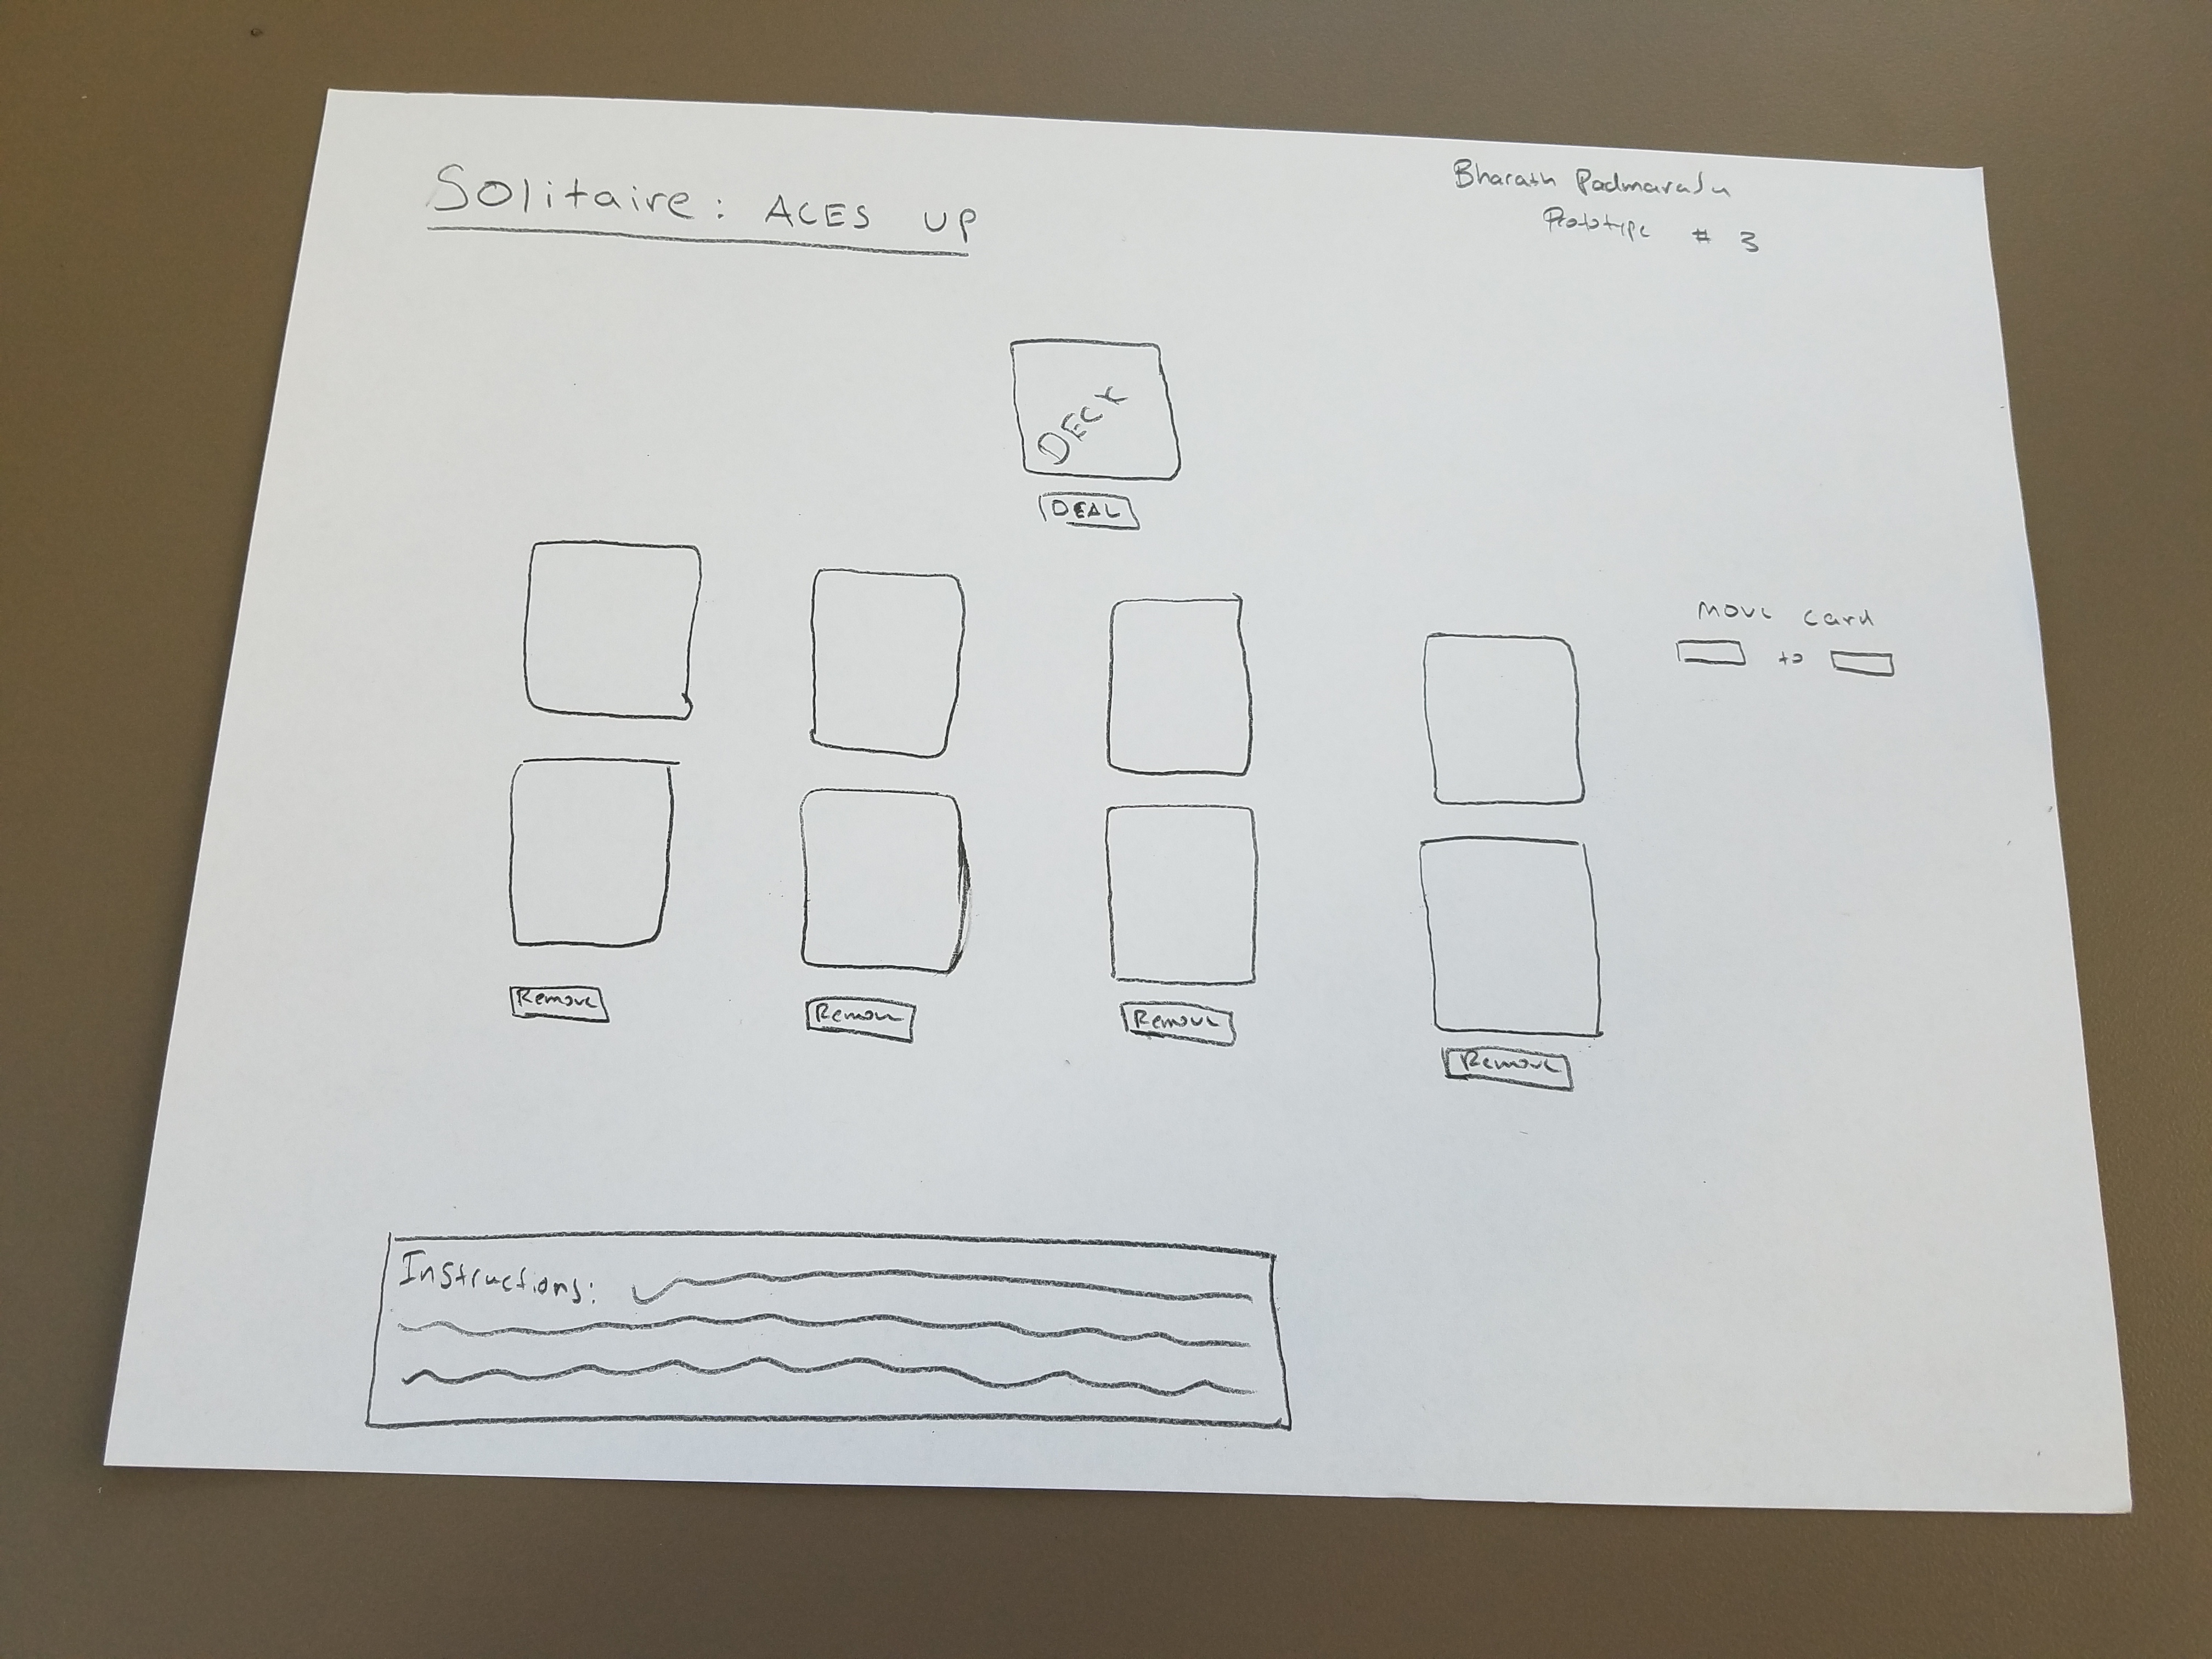 Solitaire: ACES UP
Bharath Padmaraju
Prototype # 3
DECK
DEAL
Move card
to
Remove
Remove
Remove
Remove
Instructions: